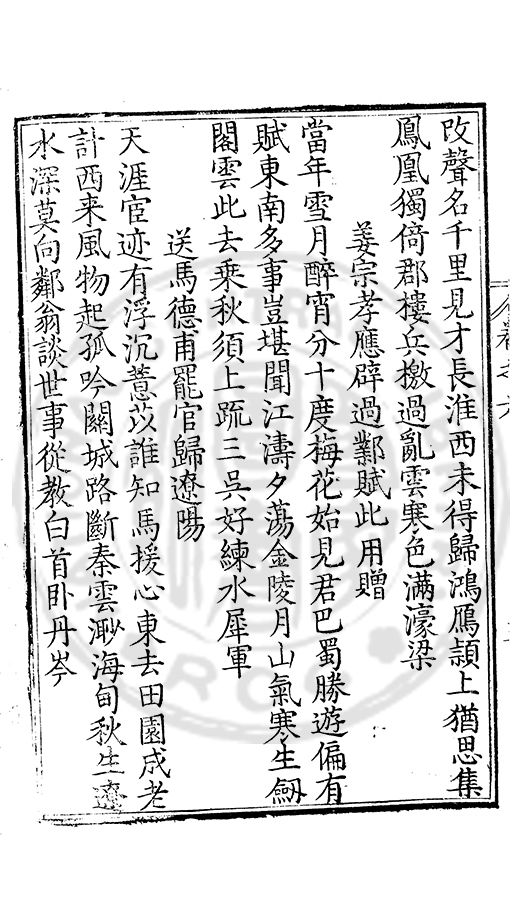 改聲名千里見才長淮西未得歸鴻鴈潁上猶思集
鳳凰獨倚郡樓兵檄過亂雲寒色滿濠梁
姜宗孝應辟過鄴賦此用贈
當年雪月醉宵分十度梅花始見君巴蜀勝遊偏有
賦東南多事豈堪聞江濤夕蕩金陵月山氣寒生劔
閣雲此去乗秋須上疏三吳好練水犀軍
送馬德甫罷官歸遼陽
天涯宦迹有浮沉薏苡誰知馬援心東去田園成老
計西来風物起孤吟關城路斷秦雲渺海甸秋生遼
水深莫向鄰翁談世事從教白首卧丹岑